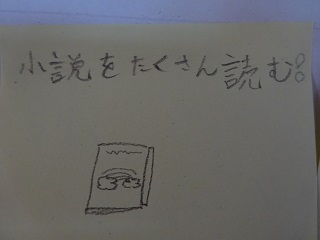 小説をたくさん読む!